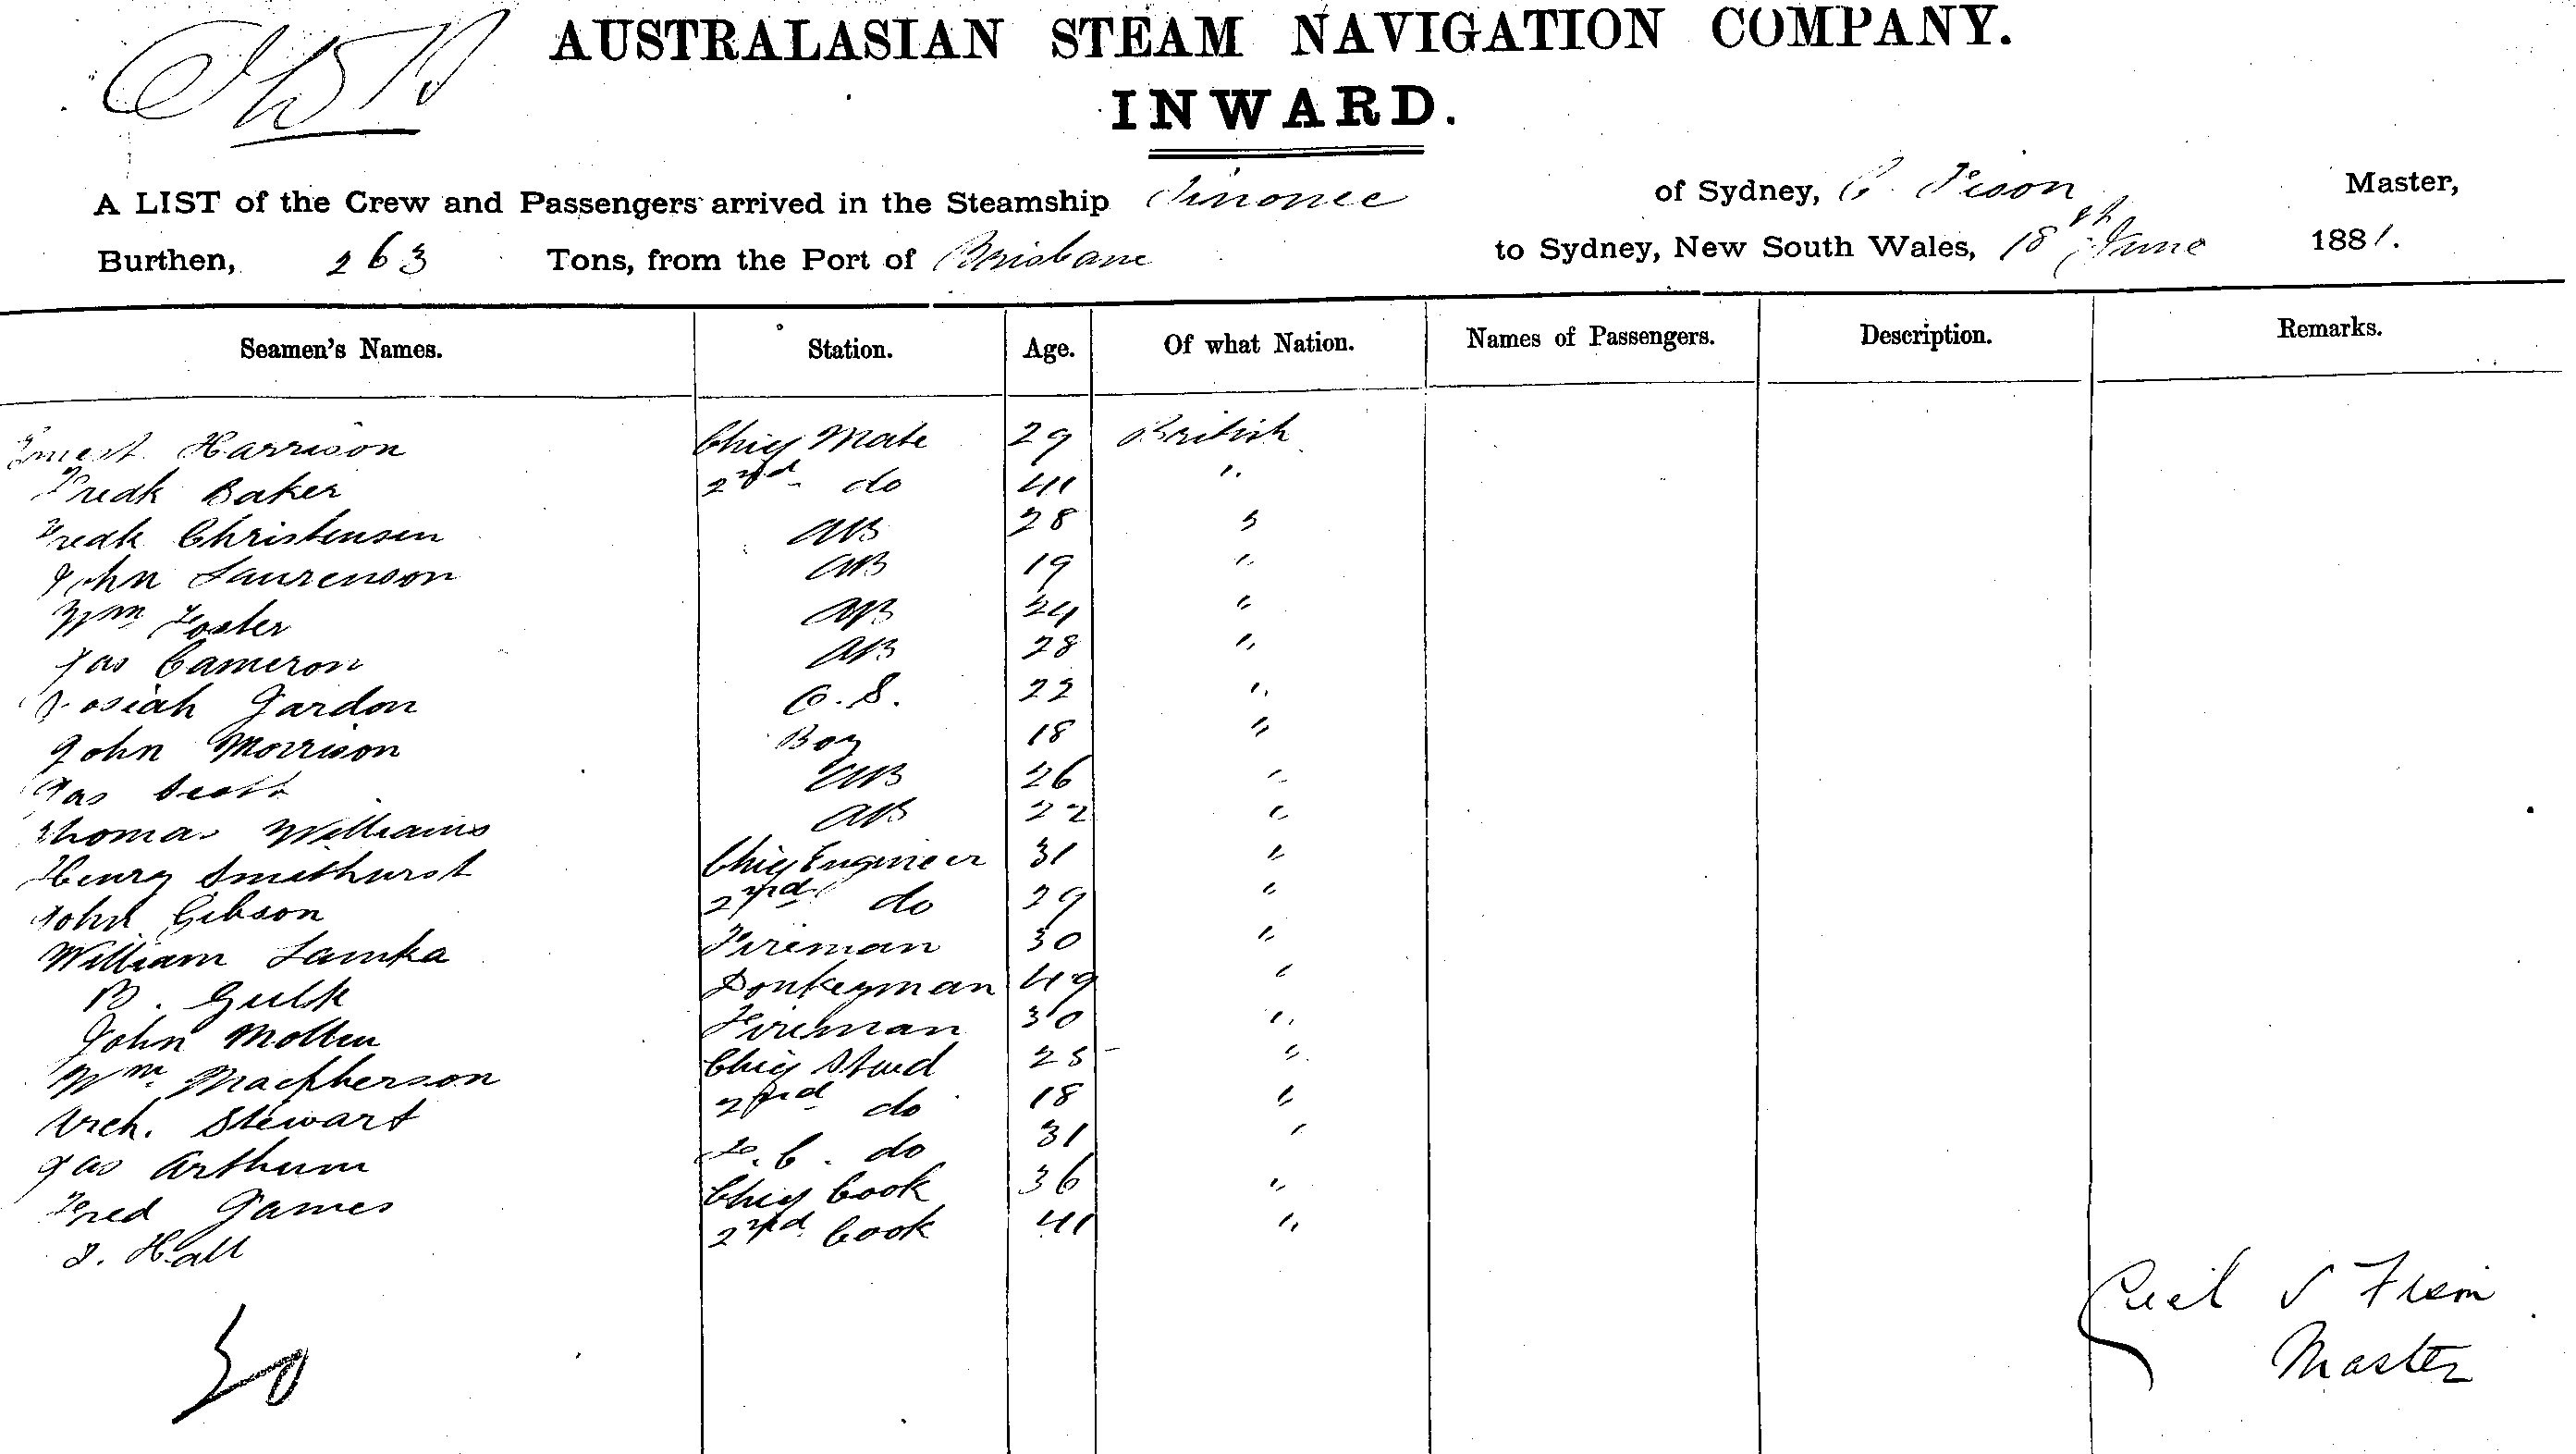 AUSTRALASIAN STEAM NAVIGATION COMPANY.
INWARD.
A LIST of the Crew and Passengers arrived in the Steamship Tinonee of Sydney, Master,
Burthen, 263 Tons, from the Port of Brisbane to Sydney, New South Wales, 18th June 1881.
Seamen's Names. Station. Age. Of what Nation. Names of Passengers. Description. Remarks.
Ernest Harrison Chief Mate 29 British
Fredk Baker 2nd do 41 "
Fredk Christensen AB 28 "
John Laurenson AB 19 "
Wm Foster AB 24 "
Jas Cameron AB 28 "
Josiah Jardon O.S. 22 "
John Morrison Boy 18 "
Jas Scott AB 26 "
Thomas Williams AB 22 "
Henry Smethurst Chief Engineer 31 "
John Gibson 2nd do 29 "
William Lamka Fireman 30 "
B. Gulk Donkeyman 49 "
John Molten Fireman 30 "
Wm Macpherson Chief Stwd 25 "
Arch. Stewart 2nd do 18 "
Jas Arthur do 31 "
Fred James Chief Cook 36 "
J. Hall 2nd Cook 41 "
20
Cecil
Master